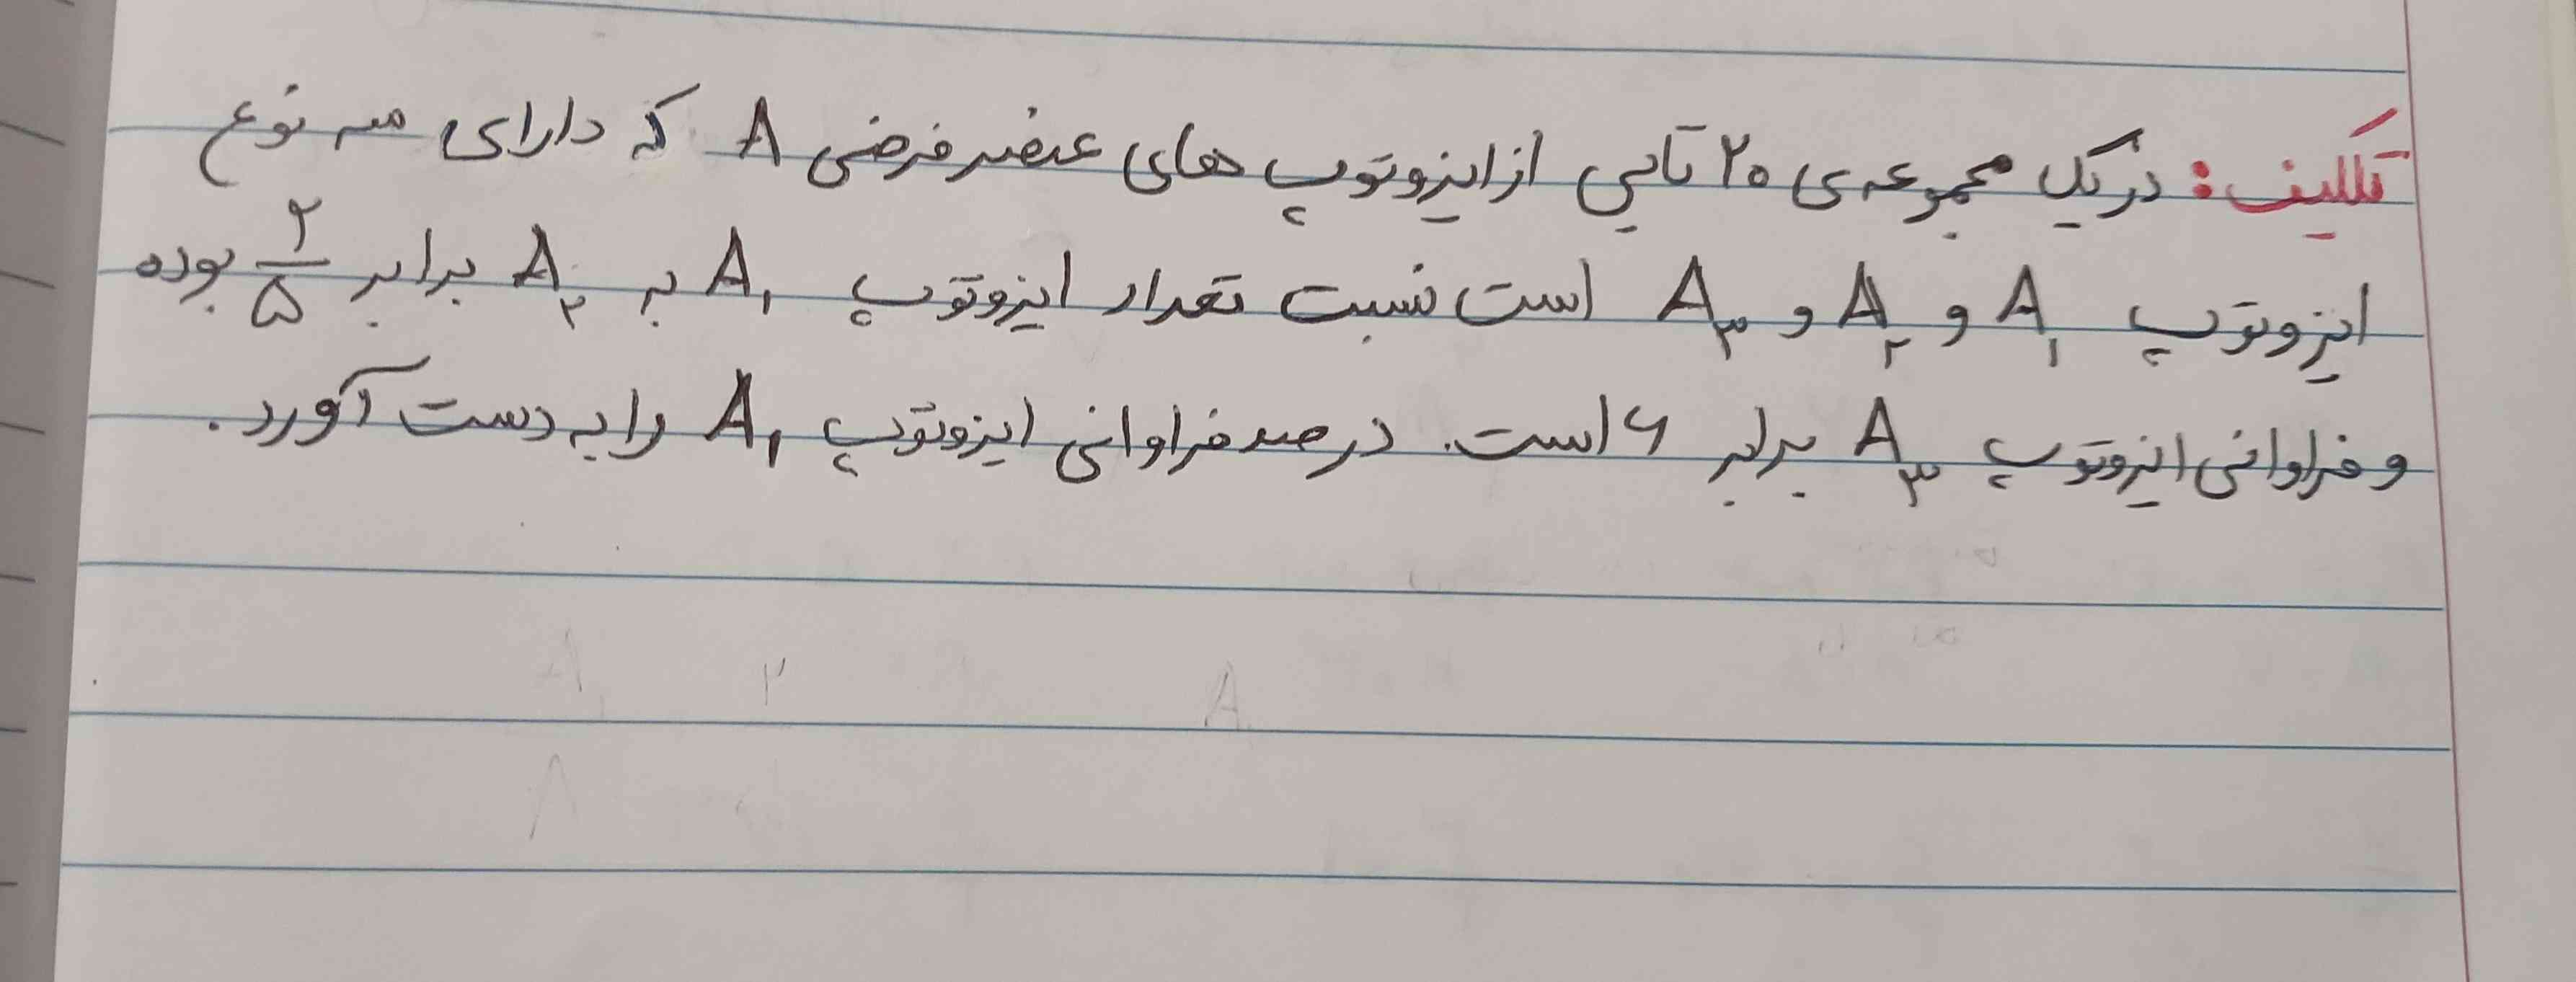 تکلیف: در یک مجموعه ی ۲۰ تایی از ایزوتوپ های عنصر فرضی A که دارای سه نوع
ایزوتوپ A₁ و A₂ و A₃ است نسبت تعداد ایزوتوپ A₁ به A₂ برابر ۲/۵ بوده
و فراوانی ایزوتوپ A₃ برابر ۶ است. درصد فراوانی ایزوتوپ A₁ را به دست آورد.